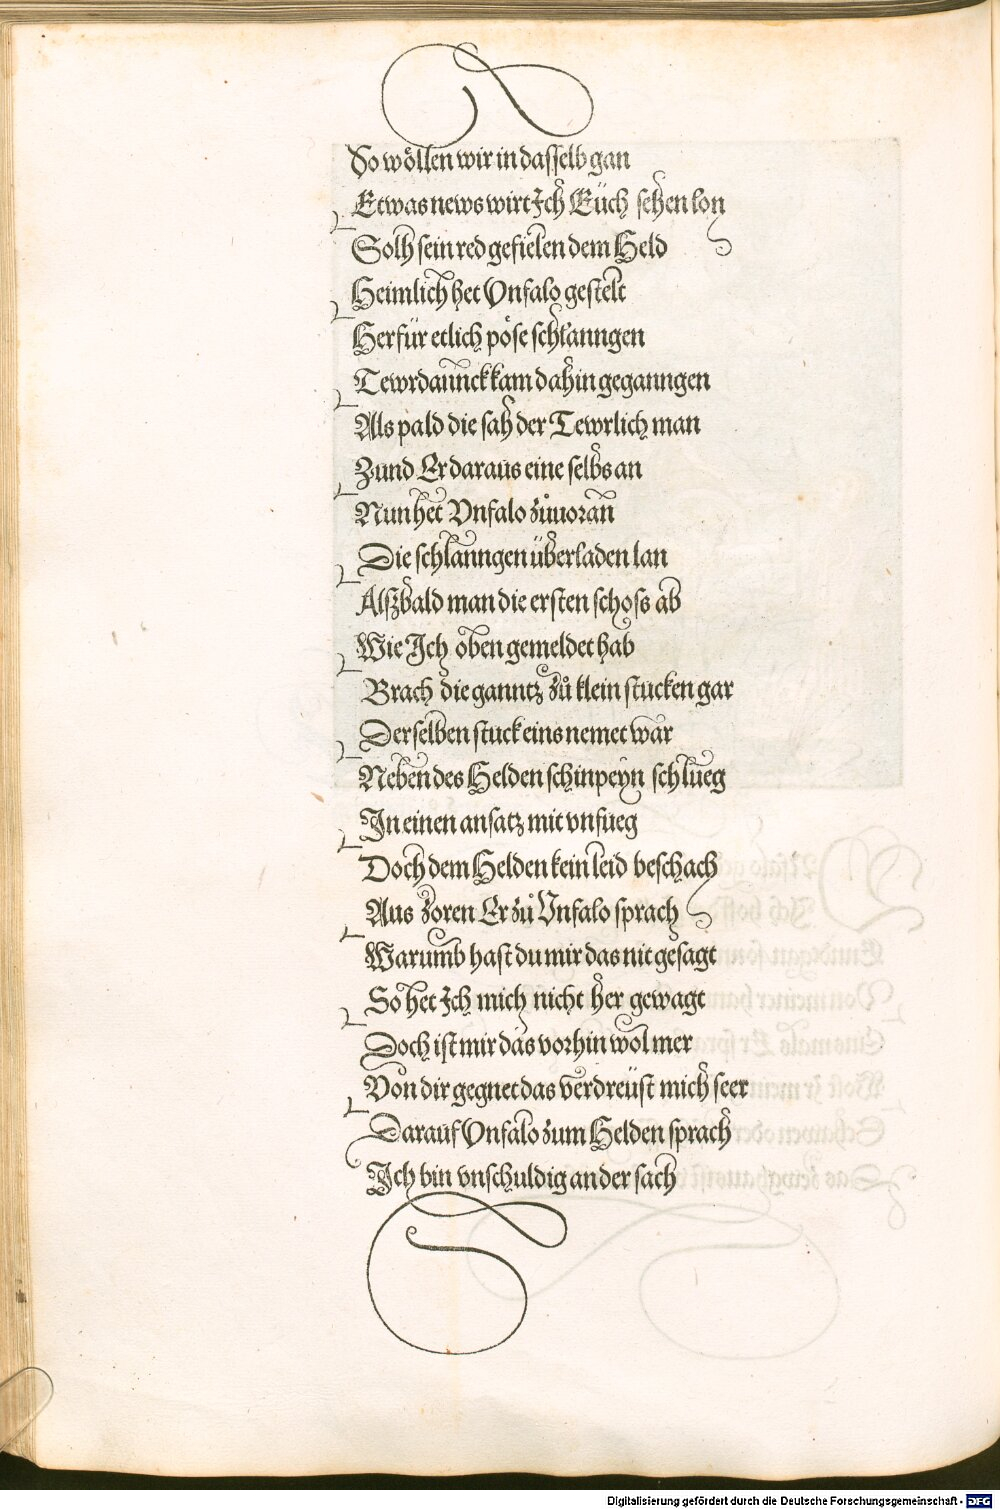 So wöllen wir in dasselb gan
Etwas news wirt Ich Eüch sehen lon
Solh sein red gefielen dem Held
Heimlich het Vnfalo gestelt
Herfür etlich pöse schlanngen
Tewrdannck kam dahin geganngen
Als pald die sah der Tewrlich man
Zund Er daraus eine selbs an
Nun het Vnfalo zůuoran
Die schlanngen überladen lan
Alsßbald man die ersten schoss ab
Wie Ich oben gemeldet hab
Brach die ganntz zů klein stucken gar
Derselben stuck eins nemet war
Neben des Helden schinpeyn schlueg
In einen ansatz mit vnfueg
Doch dem Helden kein leid beschach
Aus zoren Er zů Vnfalo sprach
Warumb hast du mir das nit gesagt
So het Ich mich nicht her gewagt
Doch ist mir das vorhin wol mer
Von dir gegnet das verdreüst mich seer
Darauf Vnfalo zum Helden sprach
Ich bin vnschuldig an der sach
Digitalisierung gefördert durch die Deutsche Forschungsgemeinschaft - DFG